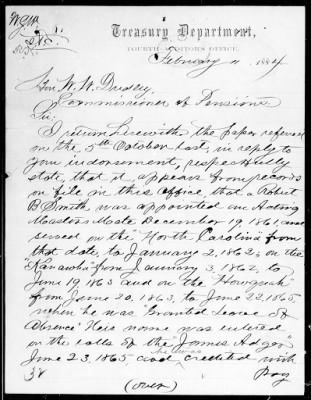 Treasury Department,
FOURTH AUDITOR'S OFFICE,
February 11 1884
Hon W. W. Dudley,
Commissioner of Pensions
Sir:
I return herewith the paper referred
on the 5th October last, in reply to
your indorsement, respectfully
state, that it appears from records
on file in this office, that a Robert
B Smith, was appointed an Acting
Masters Mate December 19, 1861, and
served on the "North Carolina" from
that date, to January 2, 1862, on the
"Kanawha" from January 3, 1862, to
June 19, 1863 and on the "Howquah"
from June 20, 1863, to June 22, 1865
when he was Granted Leave of
Absence His name was entered
on the rolls of the "James Adger"
June 23, 1865, and he was credited with
pay
(over)